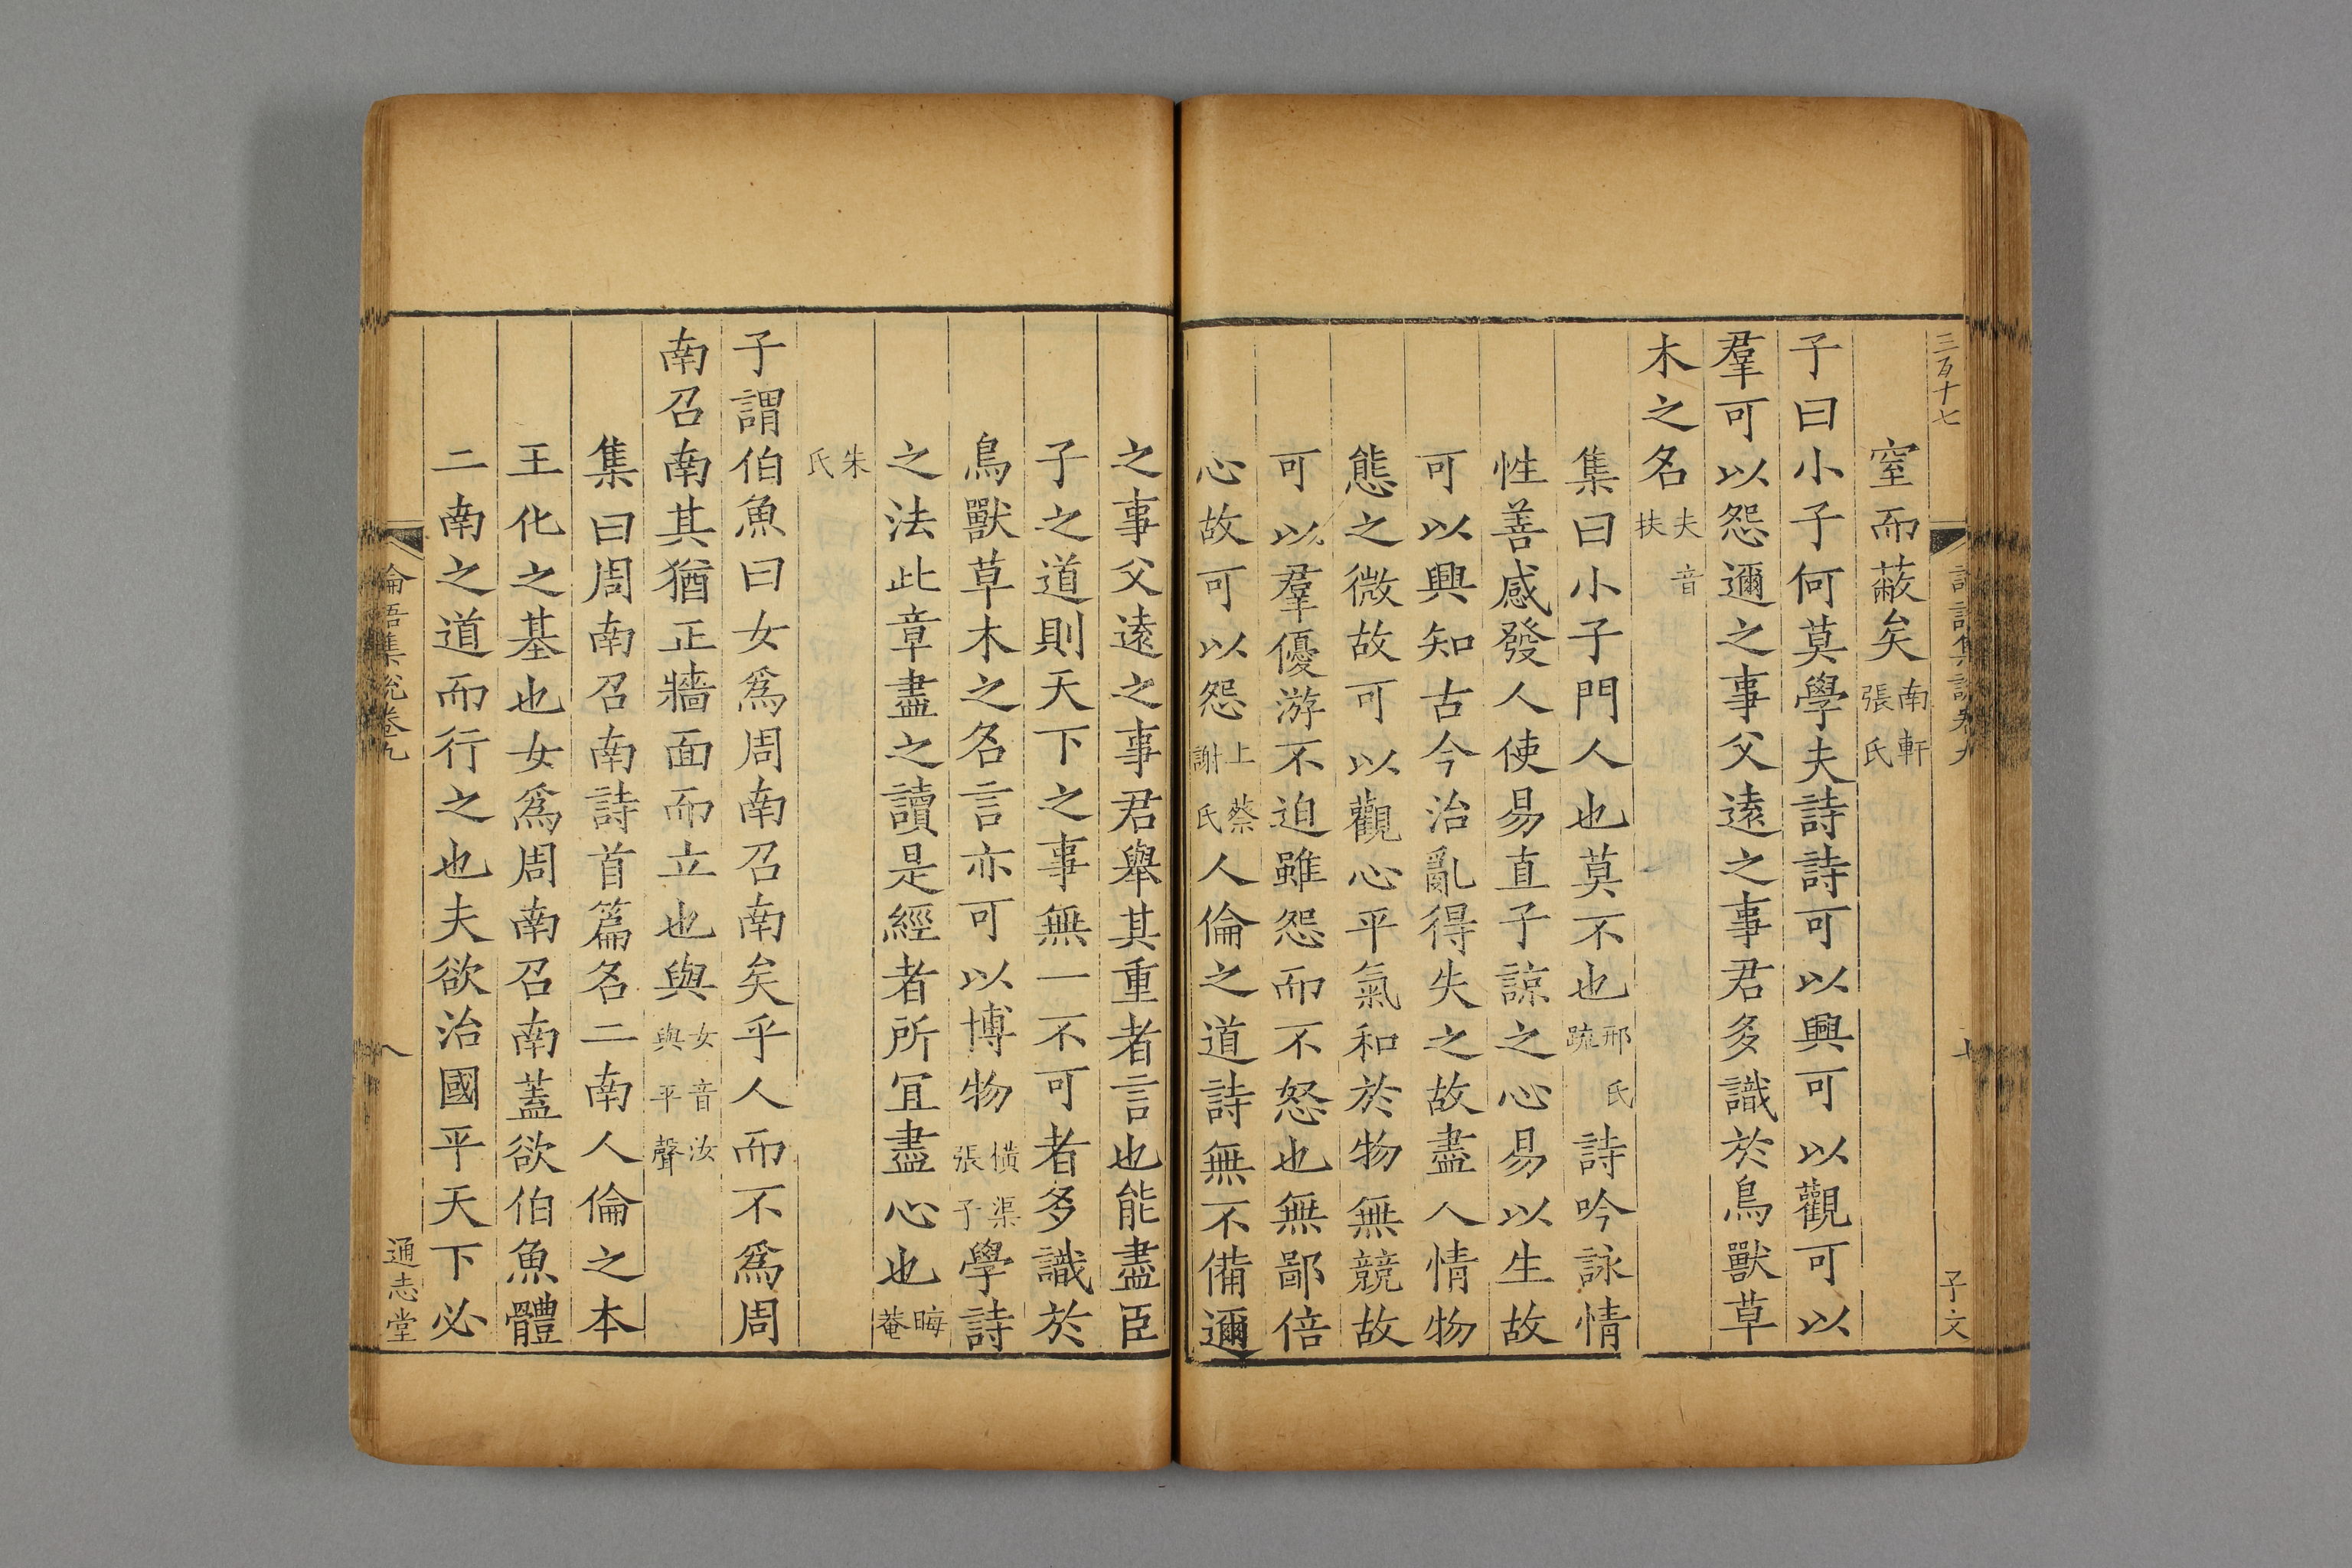 三百十七
子文
窒而蔽矣南軒張氏
子曰小子何莫學夫詩詩可以興可以觀可以
羣可以怨邇之事父遠之事君多識於鳥獸草
木之名夫音扶
集曰小子門人也莫不也邢氏疏詩吟詠情
性善感發人使易直子諒之心易以生故
可以興知古今治亂得失之故盡人情物
態之微故可以觀心平氣和於物無競故
可以羣優游不迫雖怨而不怒也無鄙倍
心故可以怨上蔡謝氏人倫之道詩無不備邇
之事父遠之事君舉其重者言也能盡臣
子之道則天下之事無一不可者多識於
鳥獸草木之名言亦可以博物橫渠張子學詩
之法此章盡之讀是經者所宜盡心也晦菴
朱氏
子謂伯魚曰女爲周南召南矣乎人而不爲周
南召南其猶正牆面而立也與女音汝與平聲
集曰周南召南詩首篇名二南人倫之本
王化之基也女爲周南召南蓋欲伯魚體
二南之道而行之也夫欲治國平天下必
論語集說卷九
八
通志堂